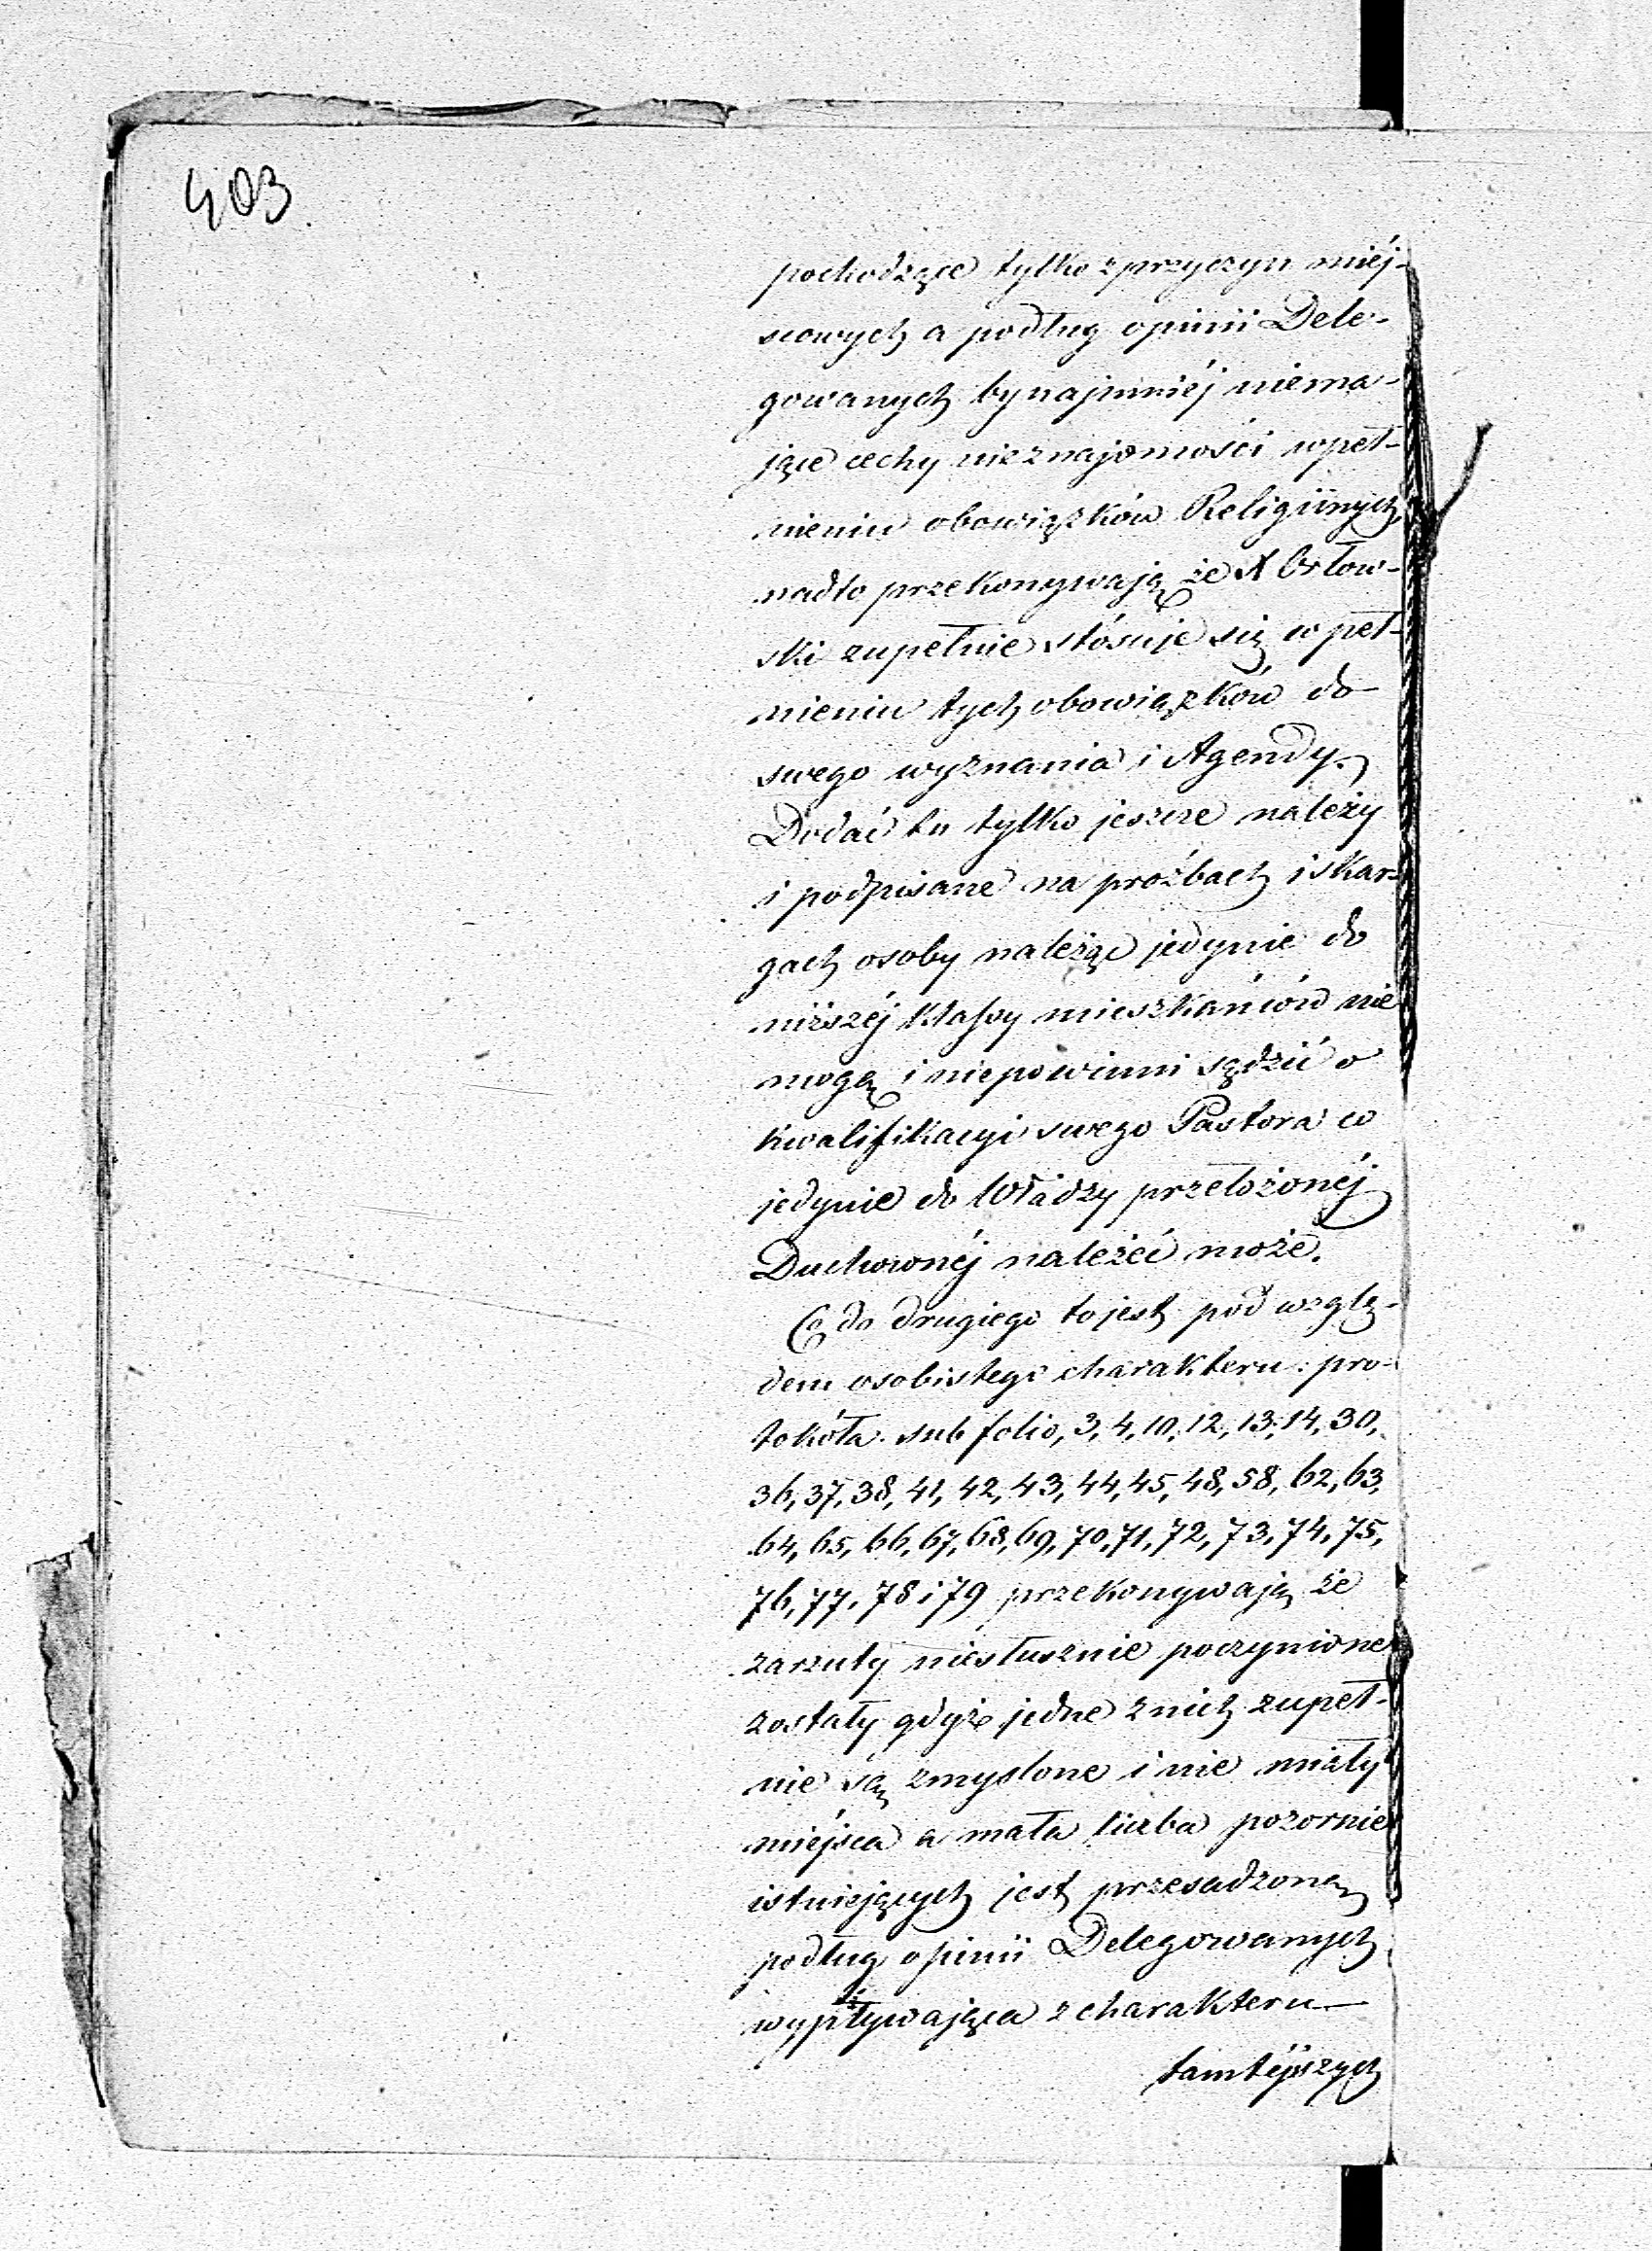 403.
pochodzące tylko z przyczyn miéj-
scowych a podług opinii Dele-
gowanych bynajmniéj niema-
jące cechy nieznajomości w peł-
nieniu obowiązków Religijnych,
nadto przekonywają że X Orłow-
ski zupełnie stósuje się w peł-
nieniu tych obowiązków do
swego wyznania i Agendy.
Dodać tu tylko jeszcze należy
i podpisane na prożbach i skar-
gach osoby należąc jedynie do
niższéj klassy mieszkańców nie
mogą i niepowinni sądzić o
kwalifikacyi swego Pastora co
jedynie do Władzy przełożonéj
Duchownéj należéć może.
Co do drugiego to jest pod wzglę-
dem osobistego charakteru: pro-
tokóła sub folio, 3, 4, 10, 12, 13, 14, 30,
36, 37, 38, 41, 42, 43, 44, 45, 48, 58, 62, 63,
64, 65, 66, 67, 68, 69, 70, 71, 72, 73, 74, 75,
76, 77, 78 i 79 przekonywają że
zarzuty niesłusznie poczynione
zostały gdyż jedne z nich zupeł-
nie są zmyslone i nie miały
miéjsca a mała liczba pozornie
istniejących jest przesadzoną
podług opinii Delegowanych
wypływająca z charakteru
tamtéjszych